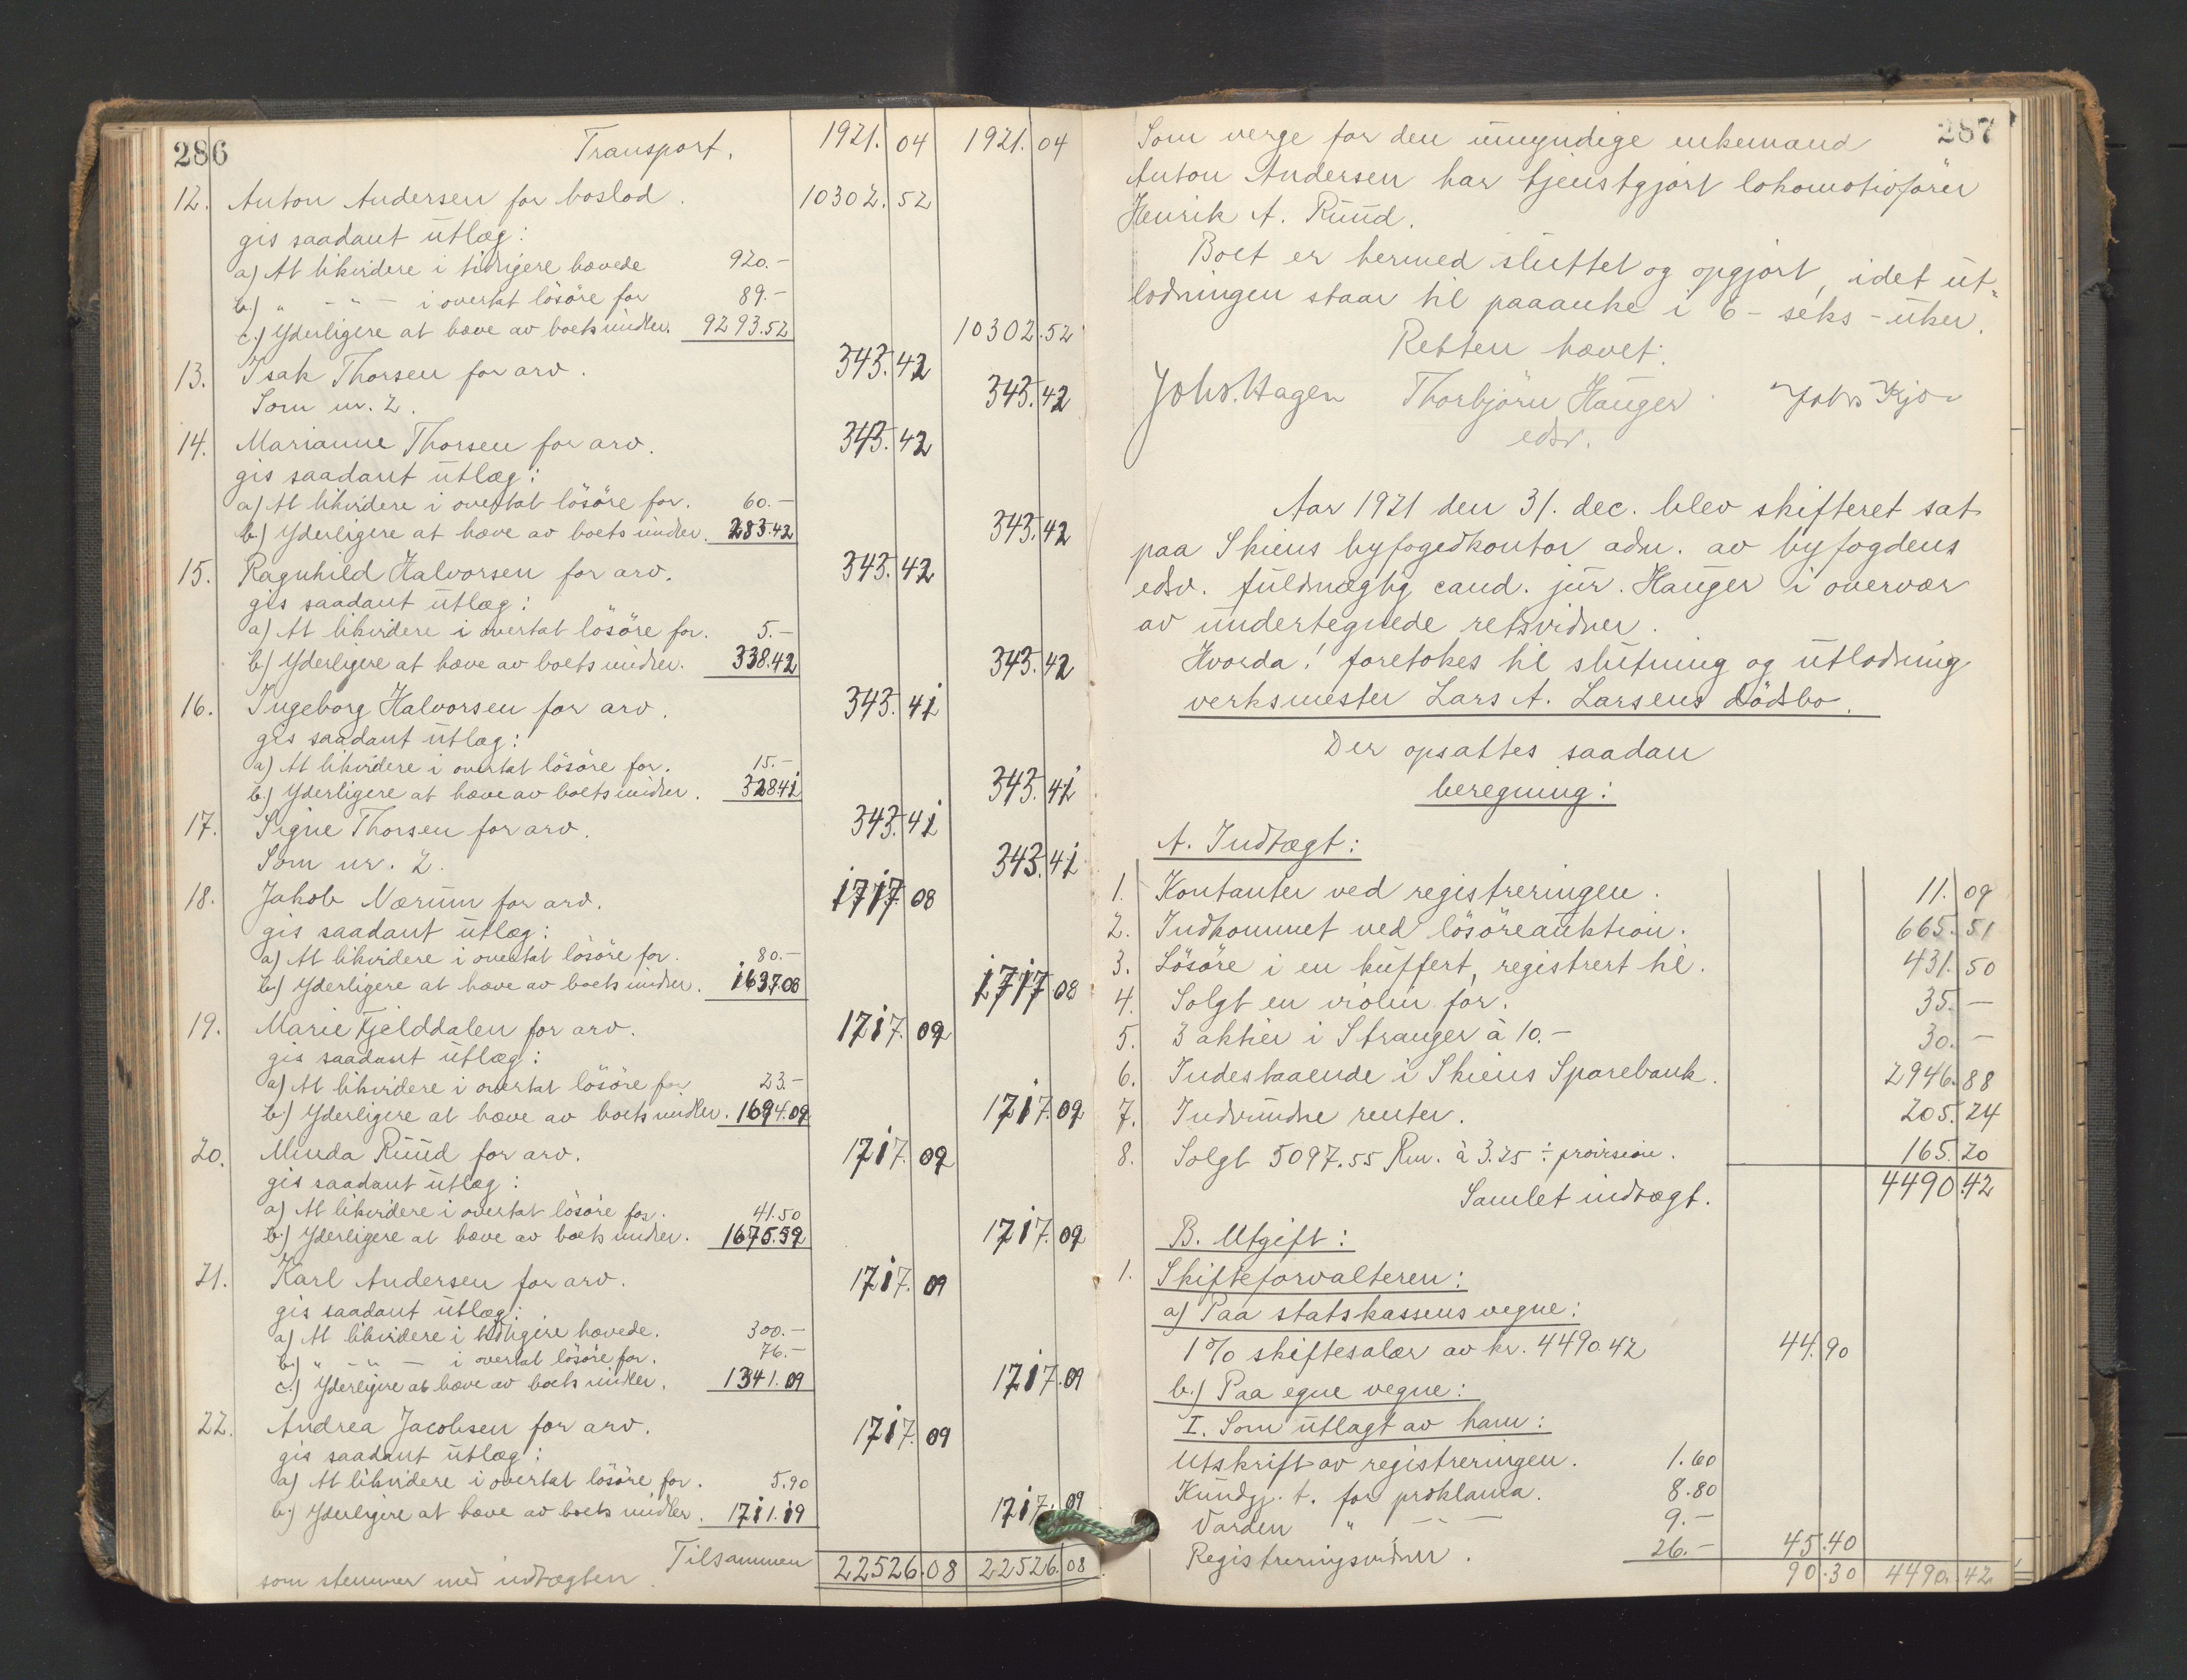 286
Transport. 1921.04 1921.04
12. Anton Andersen for boslod. 10302.52
gis saadant utlæg:
a) At likvidere i tidligere hævede 920.-
b) " - " - i overtat lösöre for 89.-
c.) Yderligere at hæve av boets midler. 9293.52 10302.52
13. Isak Thorsen for arv. 343.42
Som nr. 2. 343.42
14. Marianne Thorsen for arv. 343.42
gis saadant utlæg:
a) At likvidere i overtat lösöre for. 60.-
b.) Yderligere at hæve av boets midler. 283.42 343.42
15. Ragnhild Halvorsen for arv. 343.42
gis saadant utlæg:
a) At likvidere i overtat lösöre for. 5.-
b.) Yderligere at hæve av boets midler. 338.42 343.42
16. Ingeborg Halvorsen for arv. 343.41
gis saadant utlæg:
a) At likvidere i overtat lösöre for. 15.-
b.) Yderligere at hæve av boets midler. 328.41 343.41
17. Signe Thorsen for arv. 343.41
Som nr. 2. 343.41
18. Jakob Nærum for arv. 1717.08
gis saadant utlæg:
a) At likvidere i overtat lösöre for. 80.-
b.) Yderligere at hæve av boets midler. 1637.08 1717.08
19. Marie Fjelddalen for arv. 1717.09
gis saadant utlæg:
a) At likvidere i overtat lösöre for 23.-
b.) Yderligere at hæve av boets midler. 1694.09 1717.09
20. Minda Ruud for arv. 1717.09
gis saadant utlæg:
a) At likvidere i overtat lösöre for. 41.50
b.) Yderligere at hæve av boets midler. 1675.59 1717.09
21. Karl Andersen for arv. 1717.09
gis saadant utlæg:
a) At likvidere i tidligere hævede. 300.-
b.) " - " - i overtat lösöre for. 76.-
c.) Yderligere at hæve av boets midler. 1341.09 1717.09
22. Andrea Jacobsen for arv. 1717.09
gis saadant utlæg:
a) At likvidere i overtat lösöre for. 5.90
b.) Yderligere at hæve av boets midler. 1711.19 1717.09
Tilsammen 22526.08 22526.08
som stemmer med indtægten.
287
Som verge for den umyndige enkemand
Anton Andersen har tjenstgjort lokomotivförer
Henrik A. Ruud.
Boet er hermed sluttet og opgjort, idet ut-
lodningen staar til paaanke i 6 - seks - uker.
Retten hævet.
Johs. Hagen Thorbjörn Hauger
edsv.
Aar 1921 den 31. dec. blev skifteret sat
paa Skiens byfogedkontor adm. av byfogdens
edsv. fuldmægtig cand. jur. Hauger i overvær
av undertegnede retsvidner.
Hvorda! foretokes til slutning og utlodning
verksmester Lars A. Larsens dödsbo.
Der opsattes saadan
beregning:
A. Indtægt:
1. Kontanter ved registreringen. 11.09
2. Indkommet ved lösöreauktion. 665.51
3. Lösöre i en kuffert, registrert til. 431.50
4. Solgt en violin for. 35.-
5. 3 aktier i Stranger à 10.- 30.-
6. Indestaaende i Skiens Sparebank. 2946.88
7. Indvundne renter. 205.24
8. Solgt 5097.55 Rm. à 3.25 ÷ provision. 165.20
Samlet indtægt. 4490.42
B. Utgift:
1. Skifteforvalteren:
a) Paa statskassens vegne:
1% skiftesalær av kr. 4490.42 44.90
b.) Paa egne vegne:
I. Som utlagt av ham:
Utskrift av registreringen. 1.60
Kundgj. t. for proklama. 8.80
Varden " - " - 9.-
Registreringsvidner. 26.- 45.40
90.30 4490.42